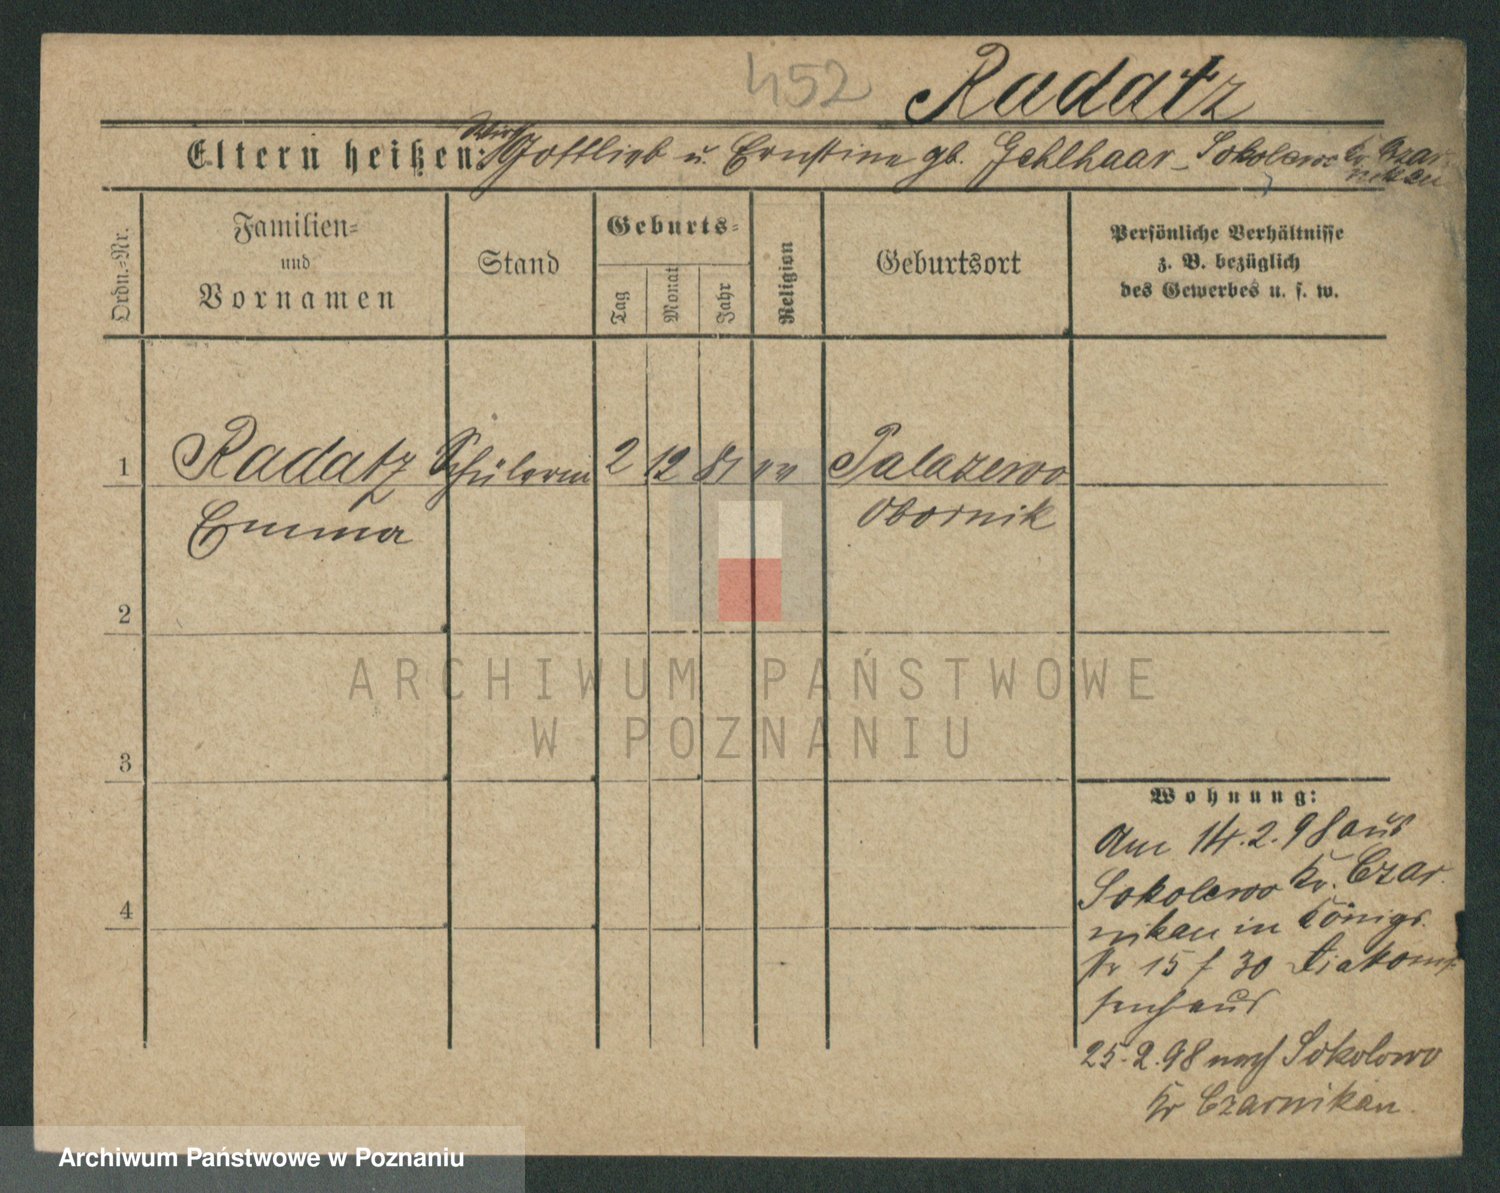 452
Radatz
Eltern heißen: Wirt Gottlieb u. Ernstine gb. Gehlhaar - Sokolewo Kr. Czar-
nikau
Ordn.-Nr.
Familien-
und
Vornamen
Stand
Geburts-
Tag
Monat
Jahr
Religion
Geburtsort
Persönliche Verhältnisse
z. B. bezüglich
des Gewerbes u. s. w.
1 Radatz Schülerin 2 12 81 ev Palazewo
Emma Obornik
2
ARCHIWUM PAŃSTWOWE
W POZNANIU
3
Wohnung:
Am 14.2.98 aus
Sokolewo Kr. Czar
nikau in Königs
15 / 30 Diakonis
senhaus
25.2.98 nach Sokolowo
Kr Czarnikau.
4
Archiwum Państwowe w Poznaniu